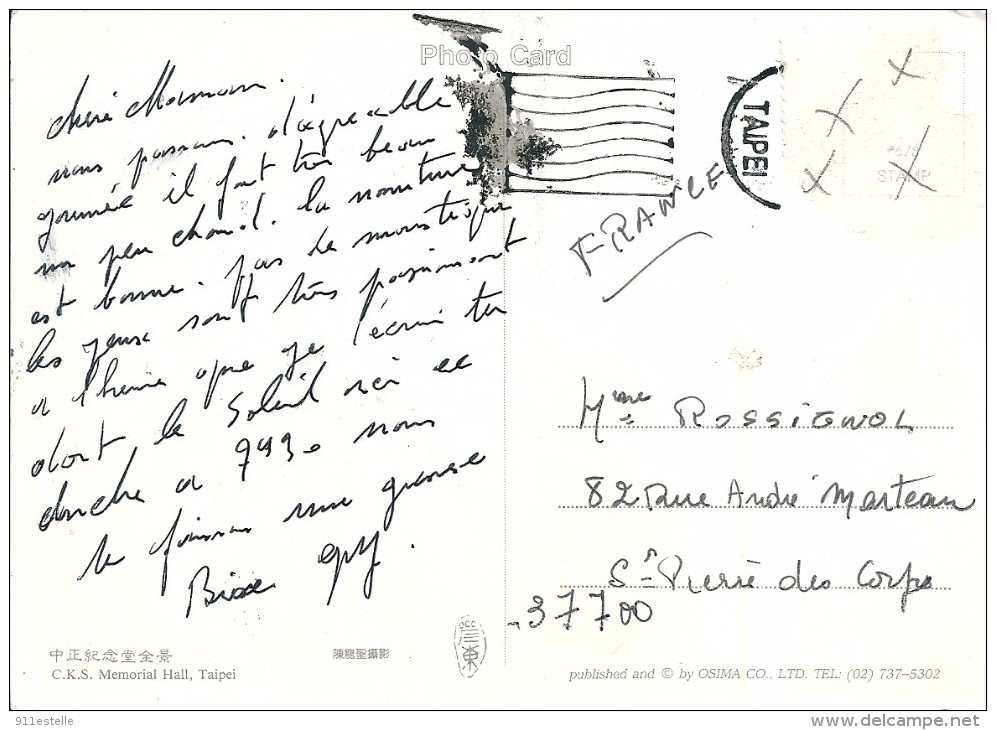 Photo Card
chère Maman.
nous passons d'agréable
journée il fait très beau
un peu chaud. la nourriture
est bonne. pas de moustique
les yeux sont très
a l'heure que je t'écris tu
dort le Soleil ici ce
couche a 7h30 nous
te faisons une grosse
Bise Guy.
TAIPEI
STAMP
FRANCE
Mme ROSSIGNOL
82 Rue André Marteau
St Pierre des Corps
37700
中正紀念堂全景
陳龍聖攝影
C.K.S. Memorial Hall, Taipei
published and © by OSIMA CO., LTD. TEL: (02) 737-5302
911estelle
www.delcampe.net